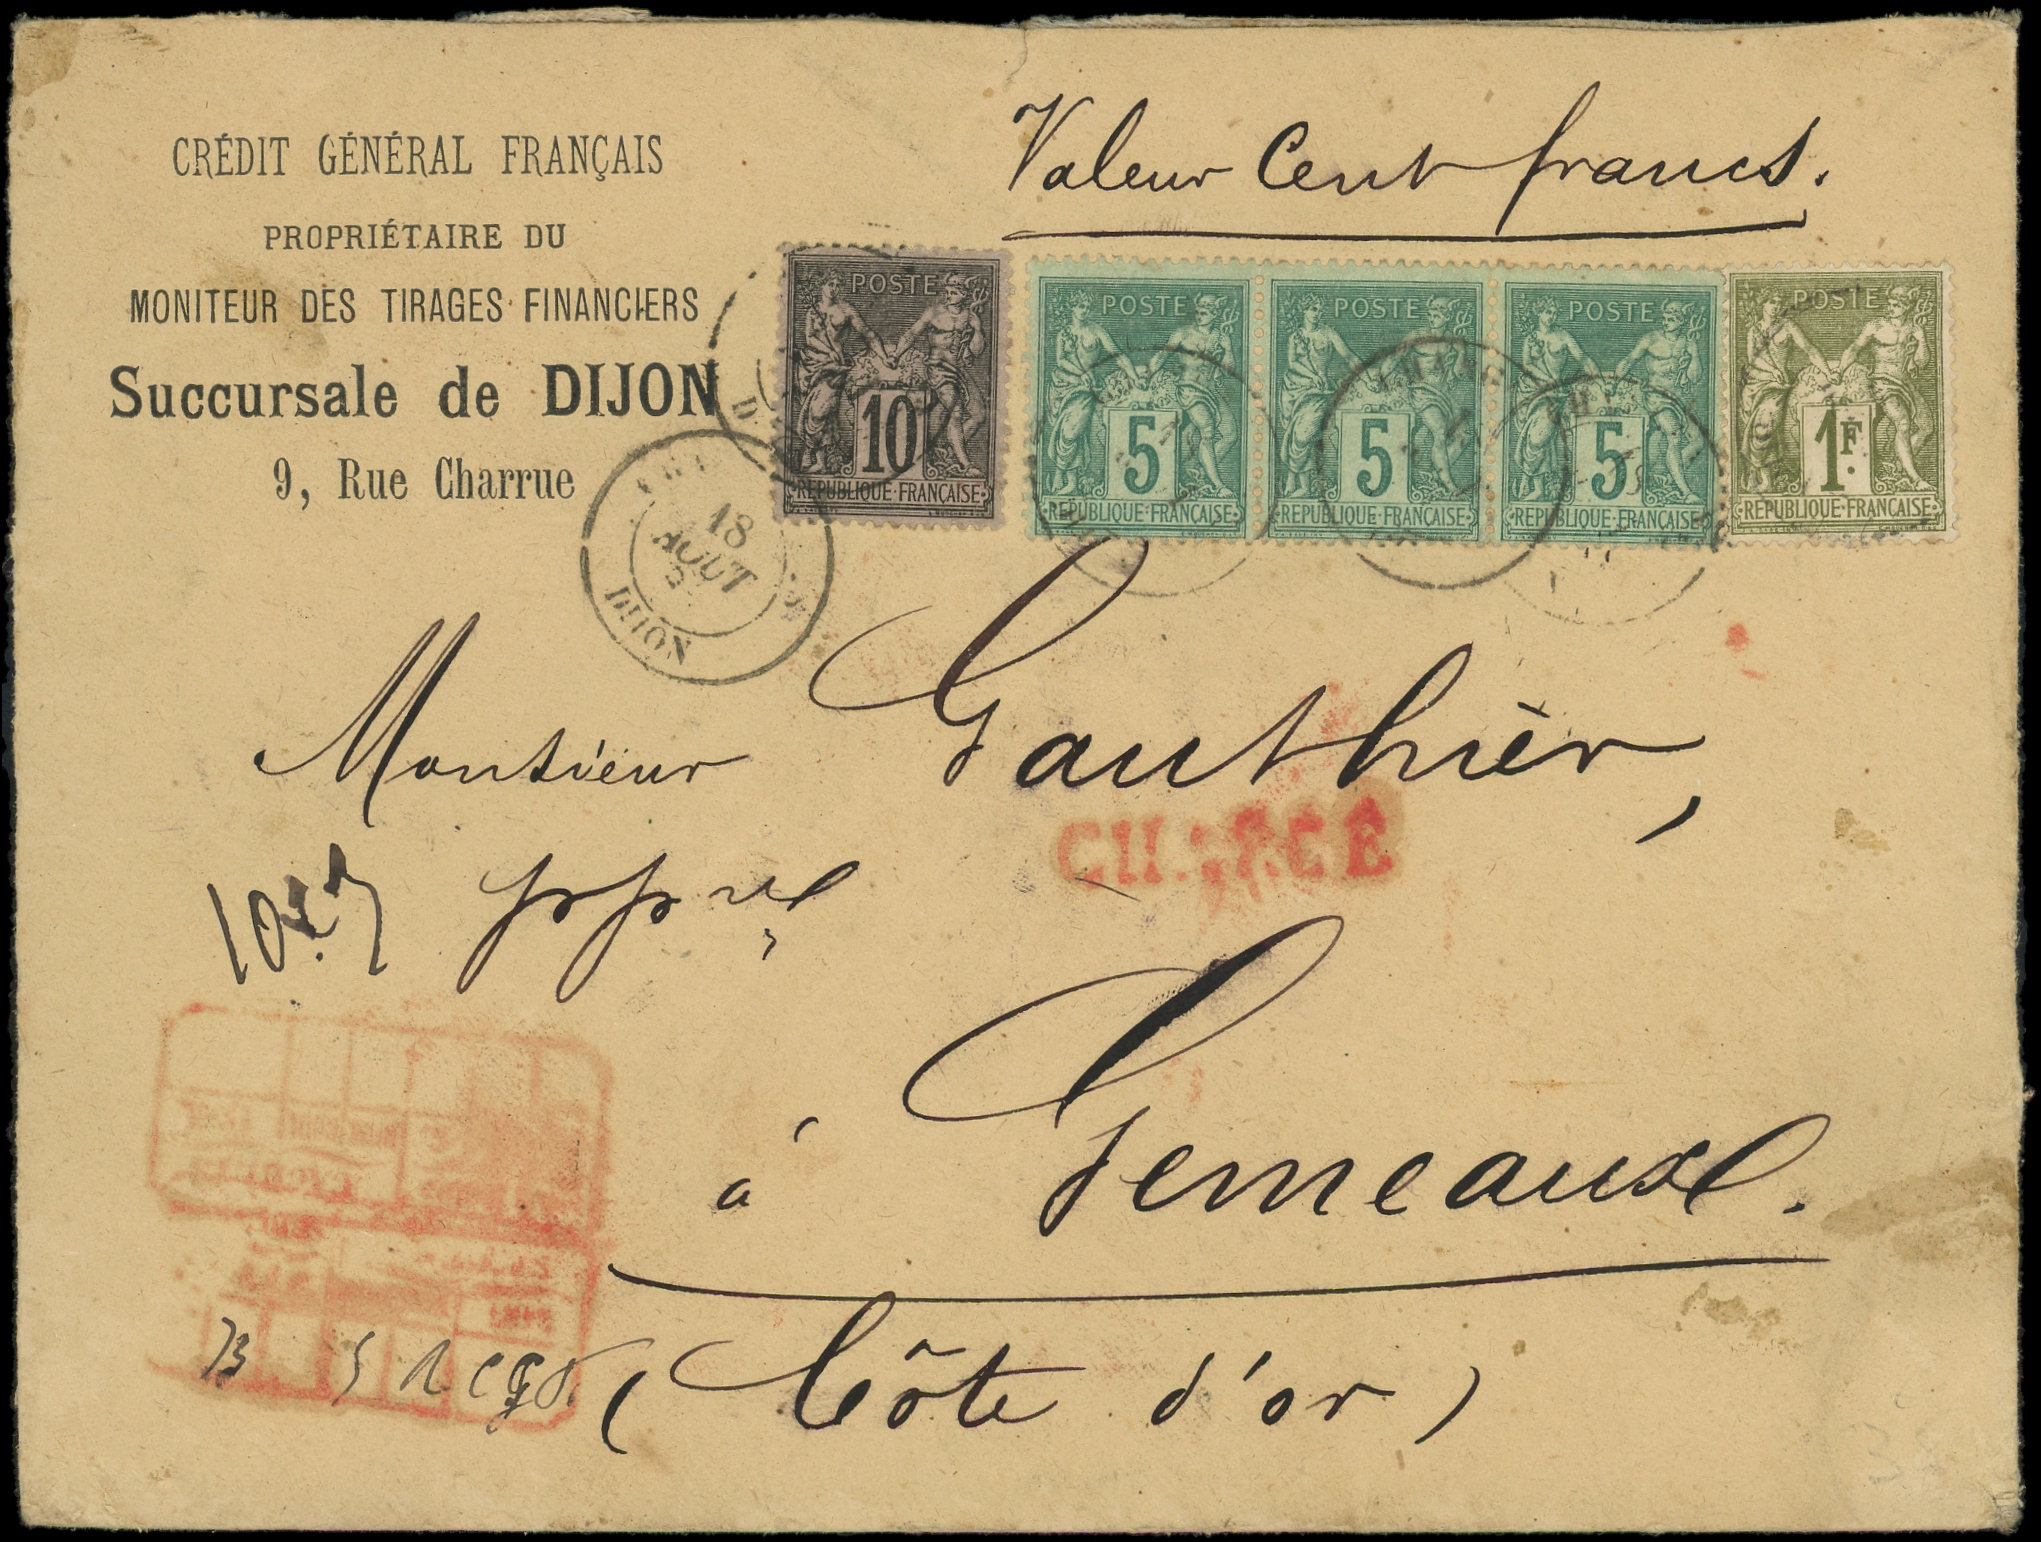 CRÉDIT GÉNÉRAL FRANÇAIS
PROPRIÉTAIRE DU
MONITEUR DES TIRAGES FINANCIERS
Succursale de DIJON
9, Rue Charrue
Valeur Cent francs.
POSTE
10
REPUBLIQUE FRANÇAISE
POSTE
5
REPUBLIQUE FRANÇAISE
POSTE
5
REPUBLIQUE FRANÇAISE
POSTE
5
REPUBLIQUE FRANÇAISE
POSTE
1F.
REPUBLIQUE FRANÇAISE
18
AOUT
DIJON
Monsieur Gauthièr,
CHARGÉ
à Gemeaux.
(Côte d'or)